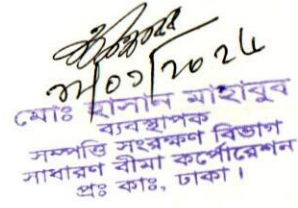 মোঃ হাসান মাহাবুব
ব্যবস্থাপক
সম্পত্তি সংরক্ষণ বিভাগ
সাধারণ বীমা কর্পোরেশন
প্রঃ কাঃ, ঢাকা।